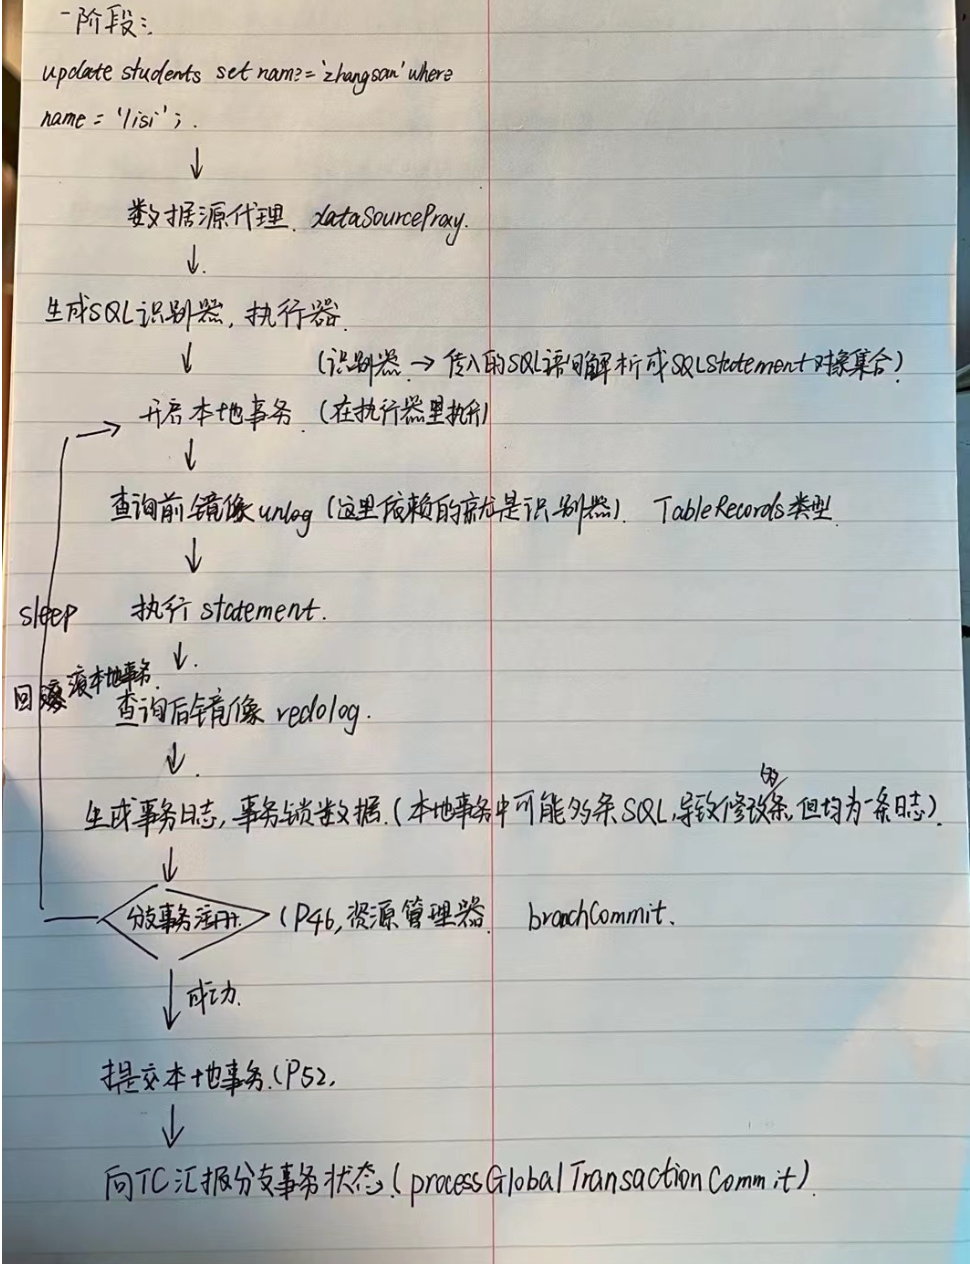 一阶段:
update students set name='zhangsan' where
name = 'lisi';
数据源代理. dataSourceProxy.
生成SQL识别器, 执行器.
(识别器 → 传入的SQL语句解析成SQLStatement对象集合)
开启本地事务. (在执行器里执行)
查询前镜像unlog (这里依赖的就是识别器). TableRecords类型.
sleep
执行 statement.
回滚本地事务.
查询后镜像 redolog.
生成事务日志, 事务锁数据. (本地事务中可能多条SQL, 导致修改多条, 但均为一条日志).
分支事务注册. (P46, 资源管理器. branchCommit.
成功.
提交本地事务. (P52,
向TC汇报分支事务状态. (processGlobalTransactionCommit).